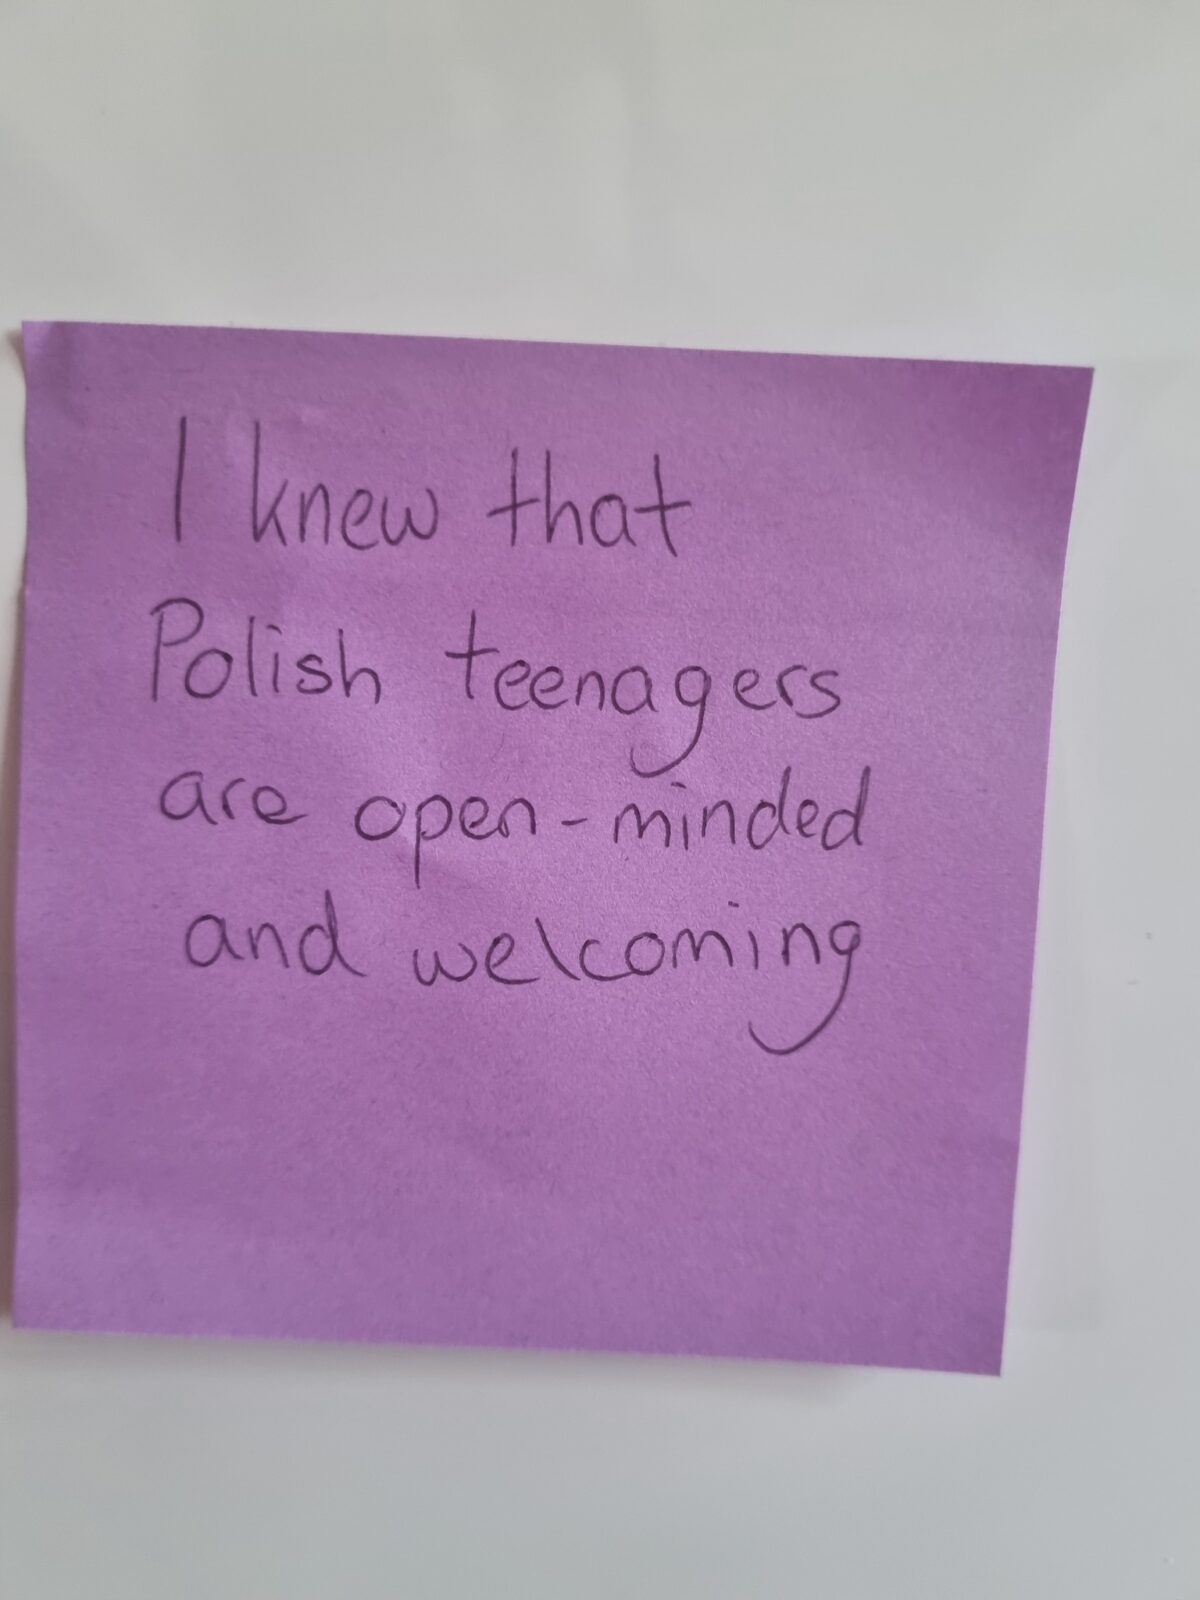 I knew that
Polish teenagers
are open-minded
and welcoming